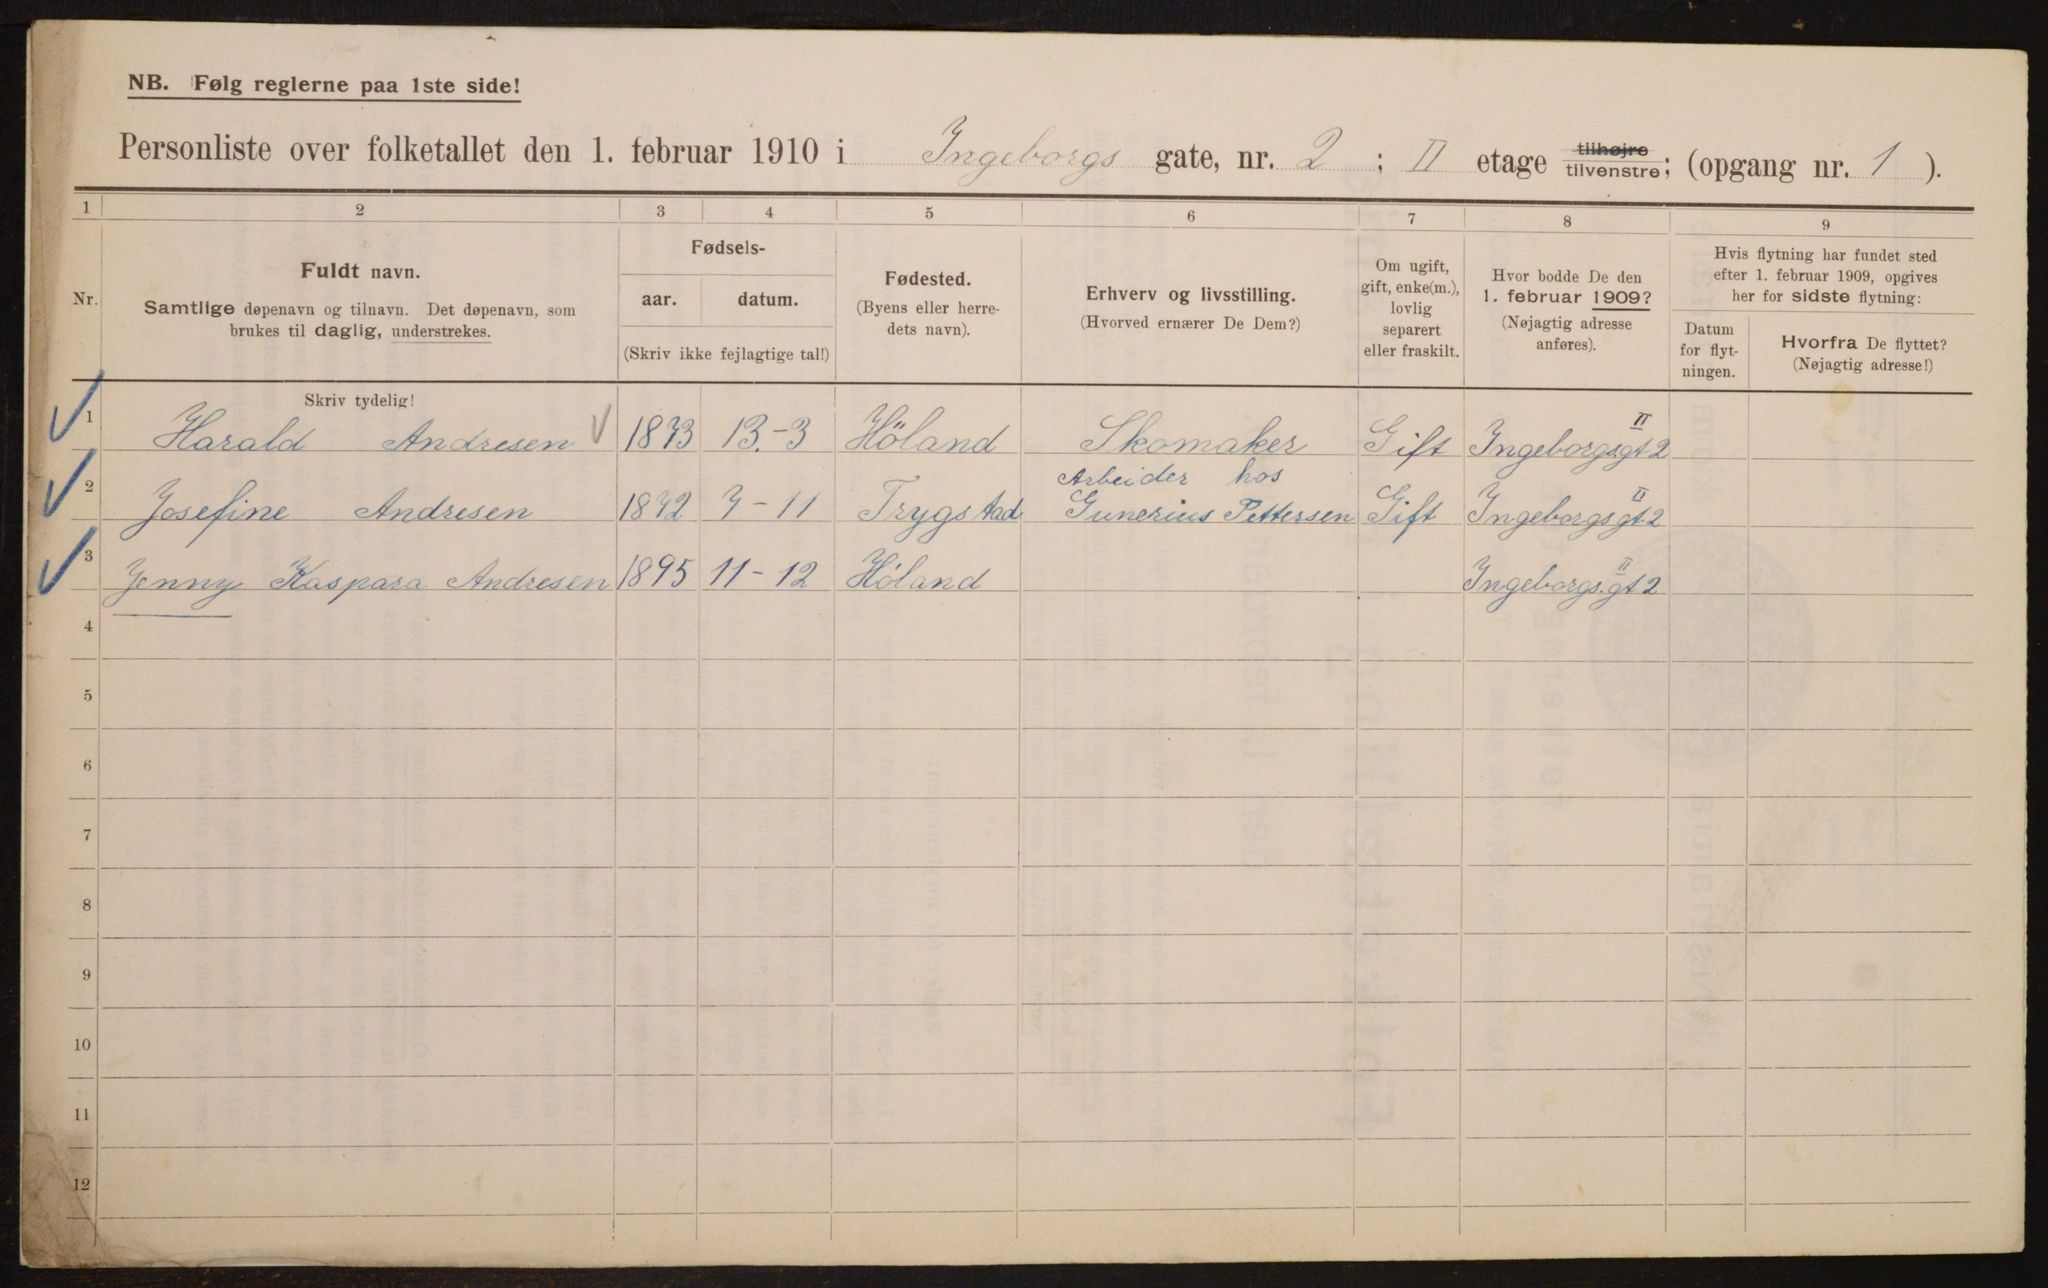 NB. Følg reglerne paa 1ste side!
Personliste over folketallet den 1. februar 1910 i Ingeborgs gate, nr. 2 ; II etage tilhøjre tilvenstre; (opgang nr. 1 ).
1 2 3 4 5 6 7 8 9
Nr.
Fuldt navn.
Samtlige døpenavn og tilnavn. Det døpenavn, som
brukes til daglig, understrekes.
Fødsels-
aar. datum.
(Skriv ikke fejlagtige tal!)
Fødested.
(Byens eller herre-
dets navn).
Erhverv og livsstilling.
(Hvorved ernærer De Dem?)
Om ugift,
gift, enke(m.),
lovlig
separert
eller fraskilt.
Hvor bodde De den
1. februar 1909?
(Nøjagtig adresse
anføres).
Hvis flytning har fundet sted
efter 1. februar 1909, opgives
her for sidste flytning:
Datum
for flyt-
ningen.
Hvorfra De flyttet?
(Nøjagtig adresse!)
Skriv tydelig!
1 Harald Andresen 1873 13.-3 Höland Skomaker Gift Ingeborgs.gt 2 II
Arbeider hos
2 Josefine Andresen 1872 7-11 Trygstad Gunerius Pettersen Gift Ingeborgs gt 2 II
3 Jenny Kaspara Andresen 1895 11-12 Höland Ingeborgs.gt 2 II
4
5
6
7
8
9
10
11
12